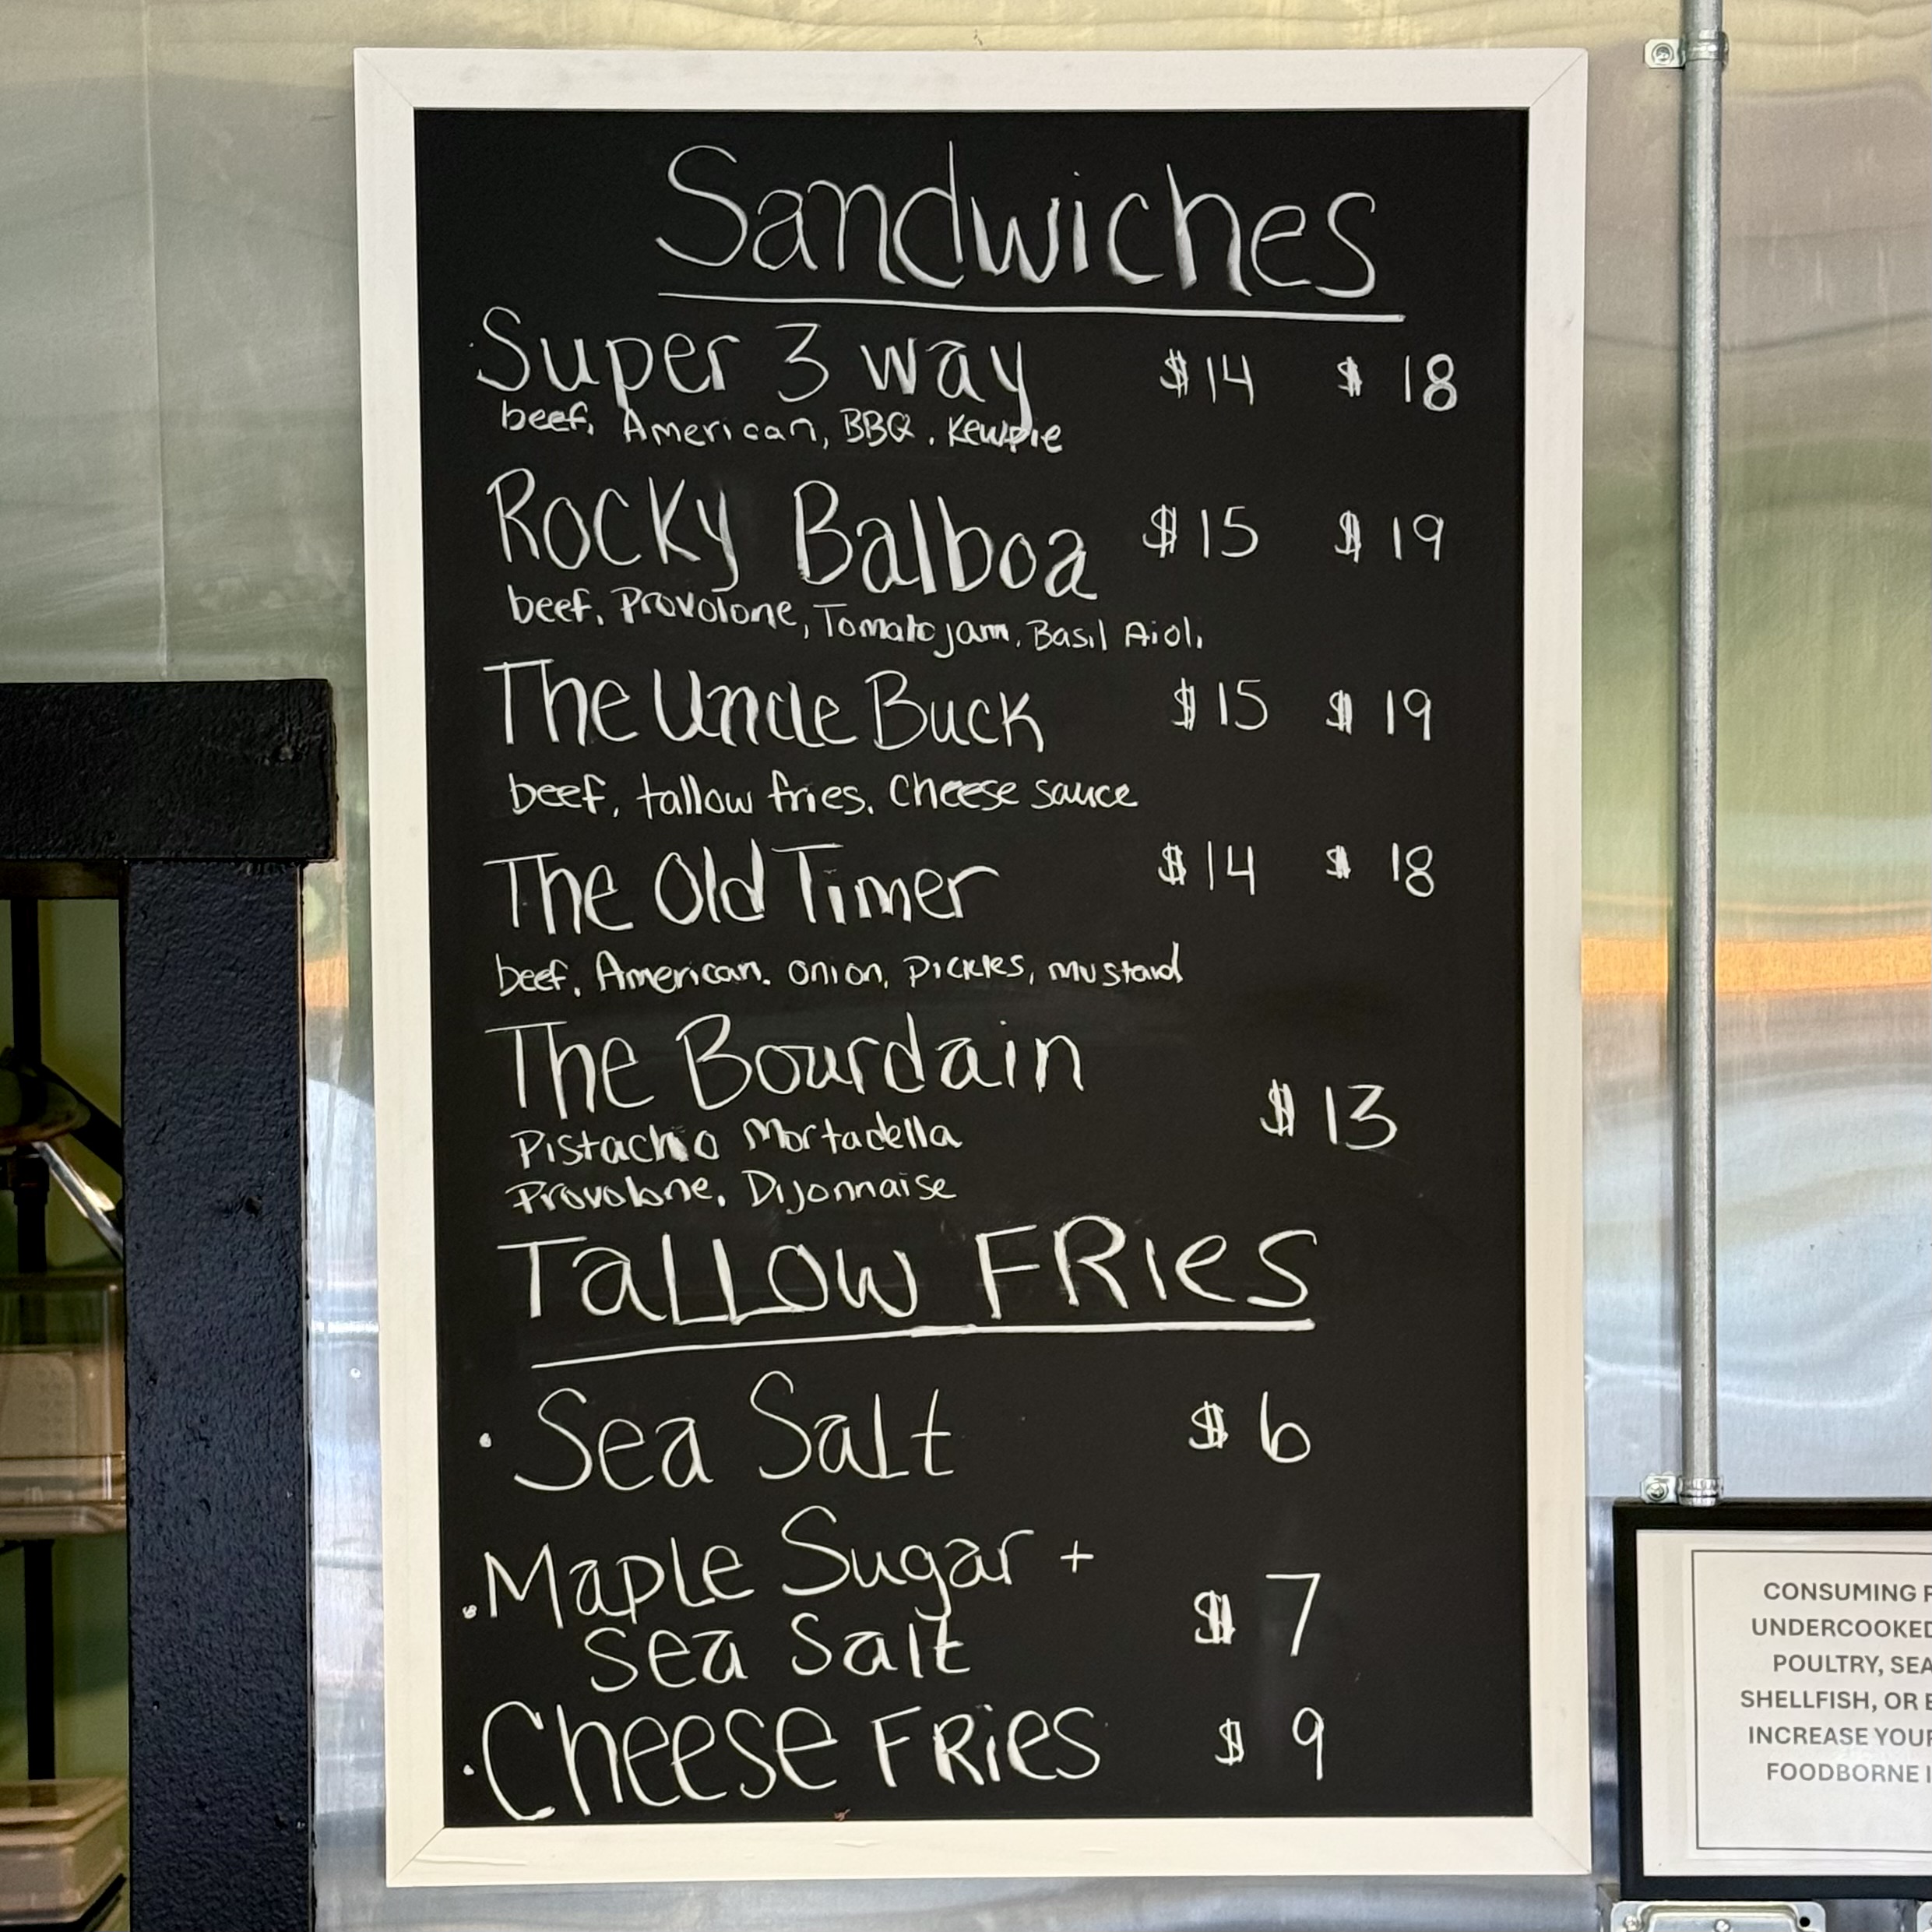 Sandwiches
Super 3 way $14 $18
beef, American, BBQ, Kewpie
Rocky Balboa $15 $19
beef, Provolone, Tomato jam, Basil Aioli
The Uncle Buck $15 $19
beef, tallow fries, cheese sauce
The Old Timer $14 $18
beef, American, onion, Pickles, mustard
The Bourdain
$13
Pistachio Mortadella
Provolone, Dijonnaise
TaLLOW FRies
· Sea Salt $6
· Maple Sugar +
sea salt $7
· Cheese FRies $9
CONSUMING
UNDERCOOKED
POULTRY, SEA
SHELLFISH, OR
INCREASE YOUR
FOODBORNE